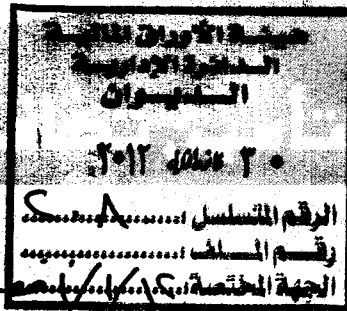 هيئة الأوراق المالية
الدائرة الإدارية
الديوان
٠٣ ٢٠١٢
الرقم المتسلسل:
رقم الملف:
الجهة المختصة: